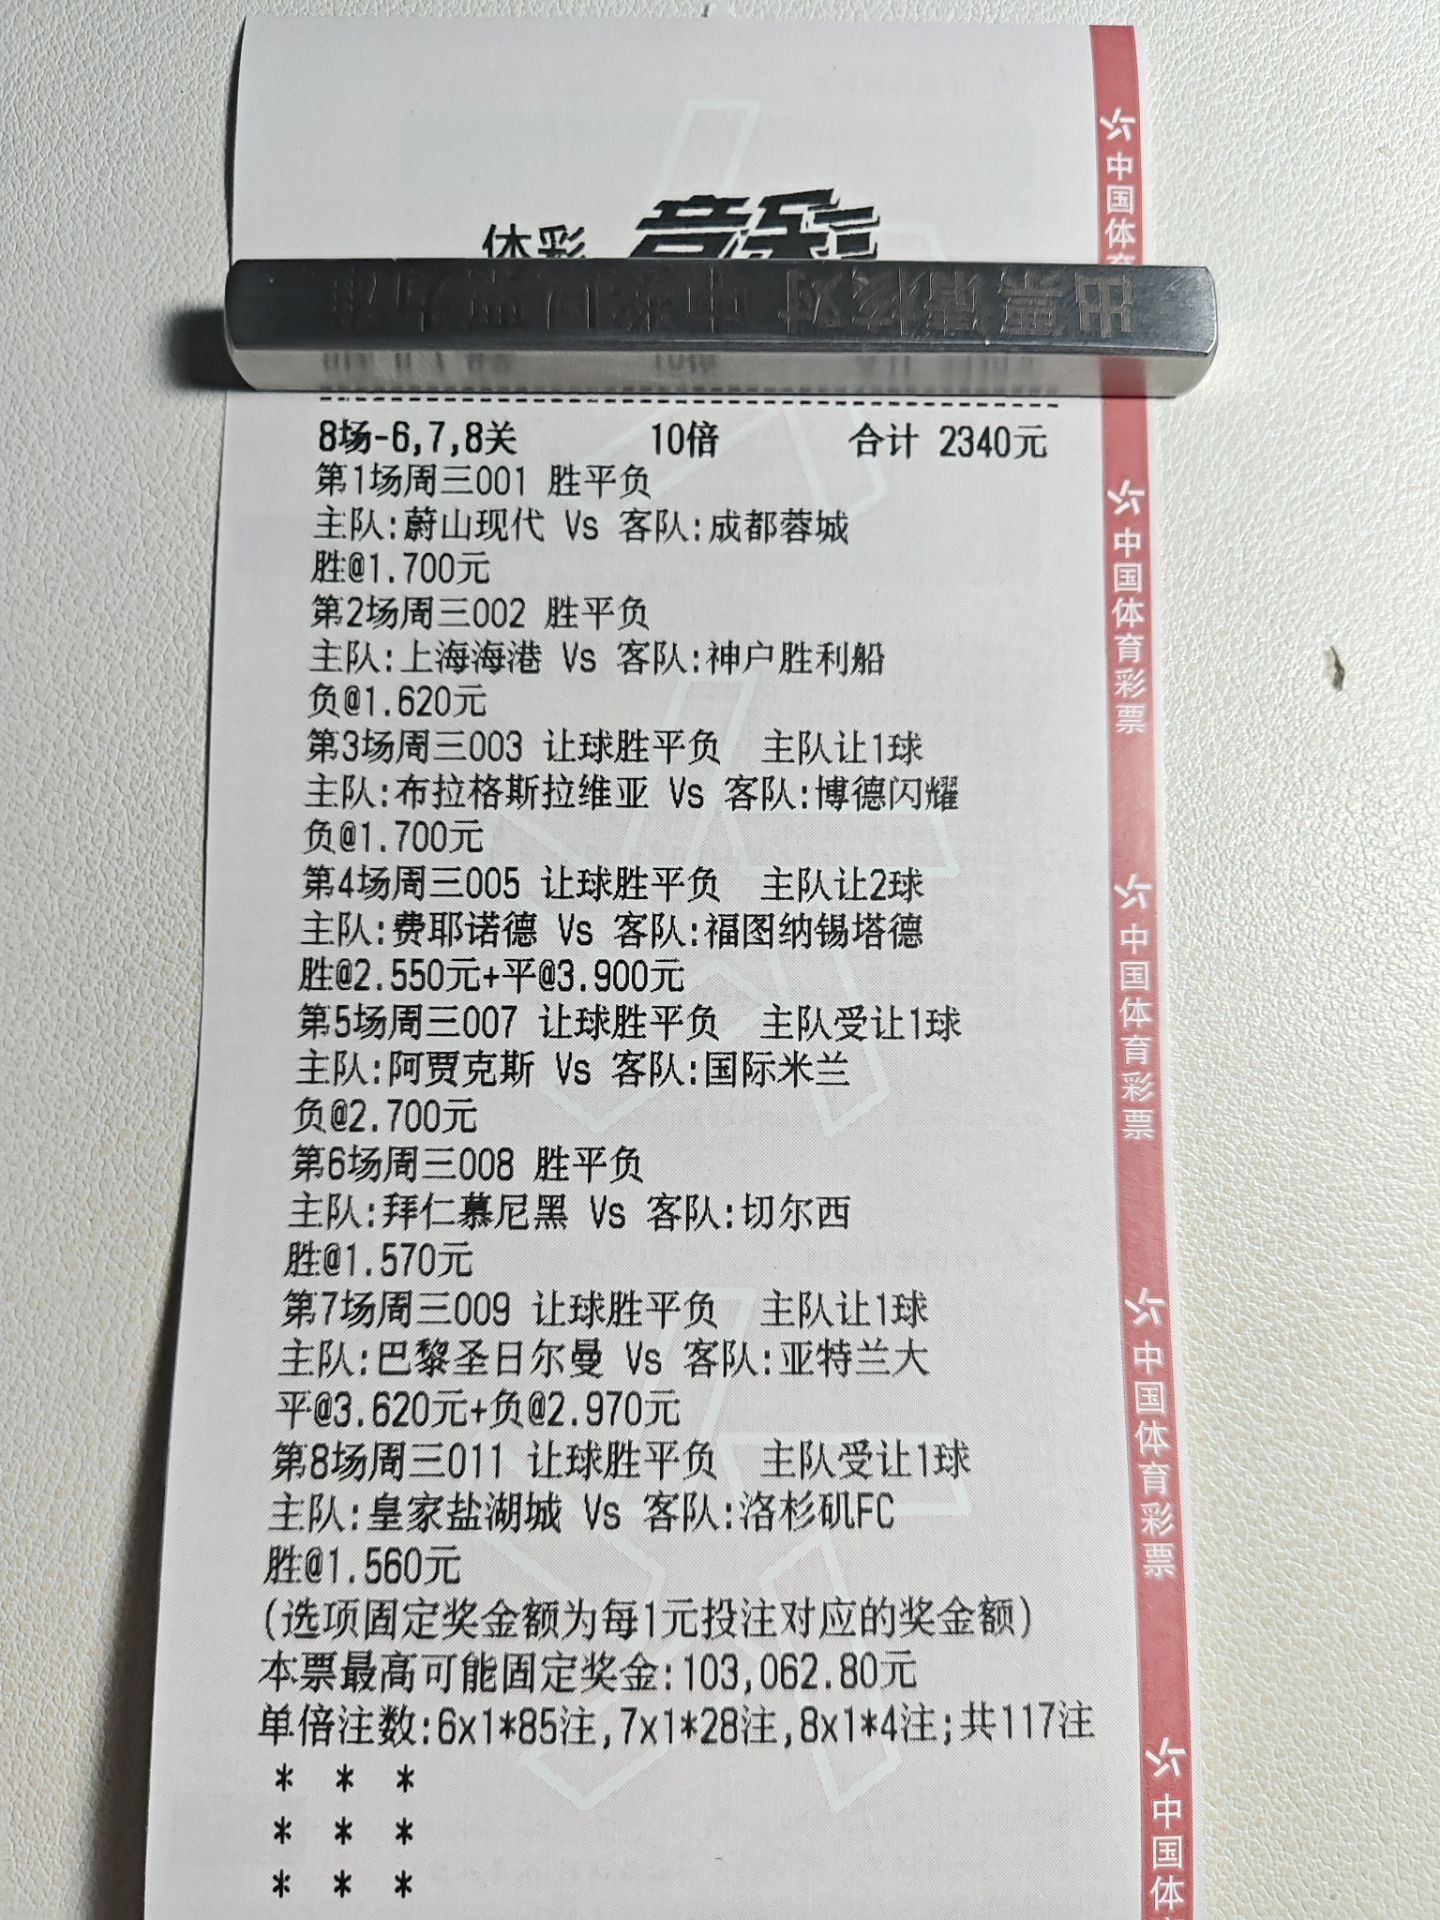 体彩 竞彩
出票请核对 中奖以票为准
8场-6,7,8关 10倍 合计 2340元
第1场周三001 胜平负
主队:蔚山现代 Vs 客队:成都蓉城
胜@1.700元
第2场周三002 胜平负
主队:上海海港 Vs 客队:神户胜利船
负@1.620元
第3场周三003 让球胜平负 主队让1球
主队:布拉格斯拉维亚 Vs 客队:博德闪耀
负@1.700元
第4场周三005 让球胜平负 主队让2球
主队:费耶诺德 Vs 客队:福图纳锡塔德
胜@2.550元+平@3.900元
第5场周三007 让球胜平负 主队受让1球
主队:阿贾克斯 Vs 客队:国际米兰
负@2.700元
第6场周三008 胜平负
主队:拜仁慕尼黑 Vs 客队:切尔西
胜@1.570元
第7场周三009 让球胜平负 主队让1球
主队:巴黎圣日尔曼 Vs 客队:亚特兰大
平@3.620元+负@2.970元
第8场周三011 让球胜平负 主队受让1球
主队:皇家盐湖城 Vs 客队:洛杉矶FC
胜@1.560元
(选项固定奖金额为每1元投注对应的奖金额)
本票最高可能固定奖金:103,062.80元
单倍注数:6x1*85注,7x1*28注,8x1*4注;共117注
* * *
* * *
* * *
中国体育
中国体育彩票
中国体育彩票
中国体育彩票
中国体